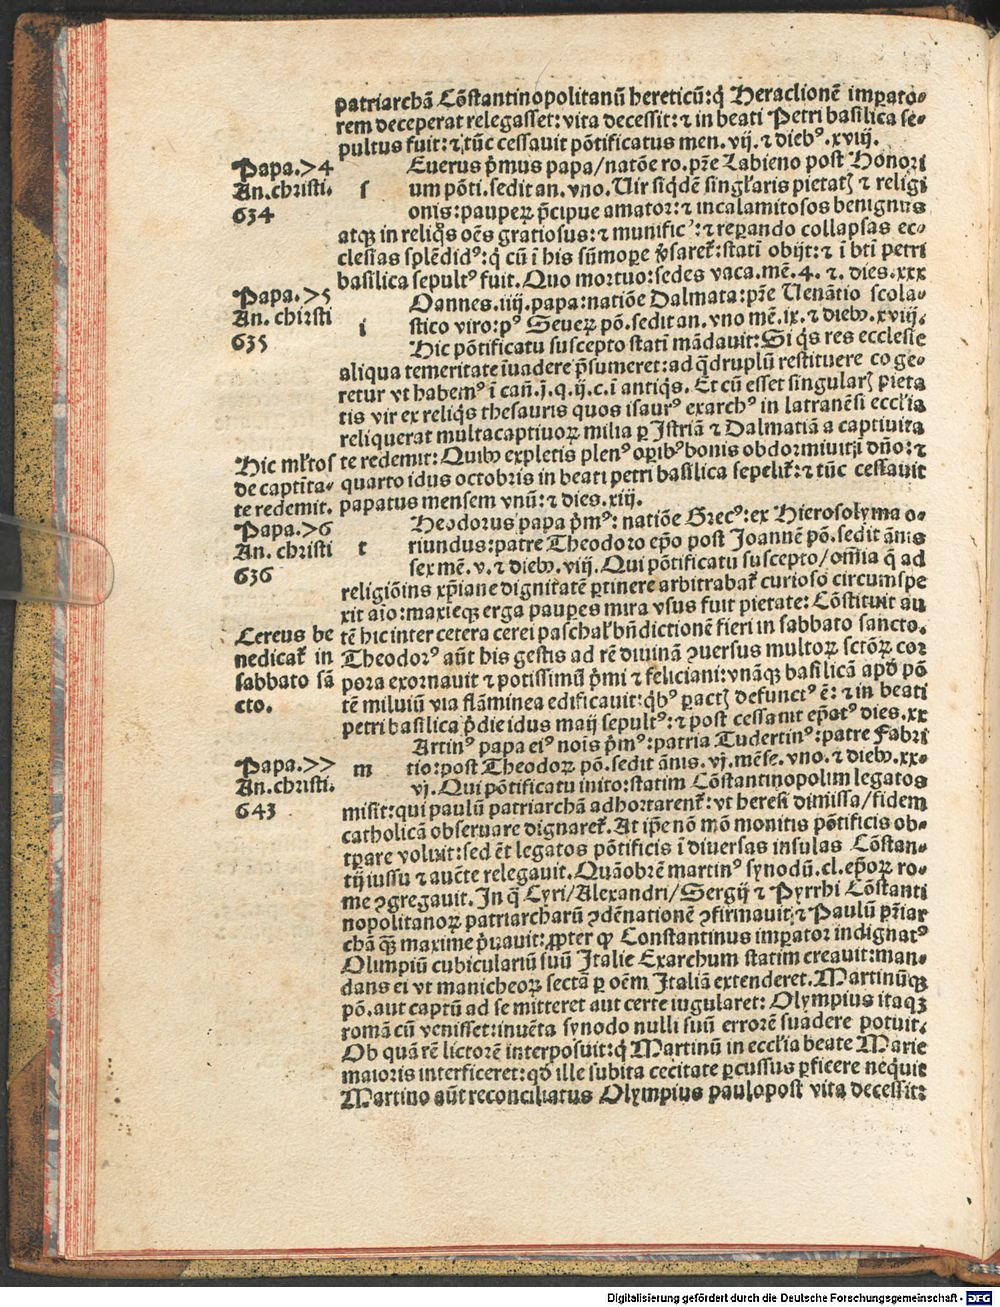 patriarchā Cōstantinopolitanū hereticū: q̄ Heraclionē imꝑato-
rem deceperat relegasset: vita decessit: ⁊ in beati Petri basilica se-
pultus fuit: ⁊ tūc cessauit pōtificatus men. vij. ⁊ diebꝰ .xviij.
Papa.74
An.christi.
634
s
Euerus p̄mus papa/natōe ro.pr̄e Labieno post Honori
um pōti.sedit an. vno. Uir siq̄dē singl̓aris pietatꝭ ⁊ religi
onis: pauperꝝ p̄cipue amator: ⁊ incalamitosos benignus
atqꝫ in reliq̄s oēs gratiosus: ⁊ munificꝰ: ⁊ reꝑando collapsas ec-
clesias splēdidꝰ: q̄ cū ī his sūmoꝑe ꝟsaret̃: statī obijt: ⁊ ī bt̄i petri
basilica sepultꝰ fuit. Quo mortuo: sedes vaca.mē.4. ⁊. dies.xxx
Papa.75
An. chirsti
635
i
Oannes.iiij.papa: natiōe Dalmata: pr̄e Uenātio scola-
stico viro: pꝰ Seuerꝝ pō.sedit an. vno mē.ix. ⁊ diebꝫ.xviij.
Hic pōtificatu suscepto statī mādauit: Si q̄s res ecclesie
aliqua temeritate īuadere p̄sumeret: ad q̄druplū restituere coge-
retur vt habemꝰ ī cañ.j.q.ij.c.ī antiq̄s. Et cū esset singularꝭ pieta
tis vir ex reliq̄s thesauris quos isaurꝰ exarchꝰ in latranēsi eccl̓ia
reliquerat multa captiuoꝝ milia ꝑ Istriā ⁊ Dalmatiā a captiuita
Hic ml̓tos
de captīta-
te redemit.
te redemit: Quibꝫ expletis plenꝰ oꝑibꝰ bonis obdormiuit ī dn̄o: ⁊
quarto idus octobris in beati petri basilica sepelit̃: ⁊ tūc cessauit
papatus mensem vnū: ⁊ dies.xiij.
Papa.76
An. christi
636
t
Heodorus papa p̄mꝰ: natiōe Grecꝰ: ex Hierosolyma o-
riundus: patre Theodoro ep̄o post Joannē pō.sedit ānis
sex mē. v. ⁊ diebꝫ. viij. Qui pōtificatu suscepto/om̄ia q̄ ad
religiōins xp̄iane dignitatē ꝑtinere arbitrabat̃ curioso circumspe
xit aīo: maxieqꝫ erga pauꝑes mira vsus fuit pietate: Cōstituit au
Cereus be
nedicat̃ in
sabbato sā
cto.
tē hic inter cetera cerei paschal̓ bn̄dictionē fieri in sabbato sancto.
Theodorꝰ aūt his gestis ad rē diuinā ꝯuersus multoꝝ sctōꝝ cor
pora exornauit ⁊ potissimū p̄mi ⁊ feliciani: vnāqꝫ basilicā apđ pō
tē miluiū via flāminea edificauit: q̄bꝰ ꝑactꝭ defunctꝰ ē: ⁊ in beati
petri basilica p̄die idus maij sepultꝰ: ⁊ post cessauit ep̄atꝰ dies.xx
Papa.77
An.christi.
643
m
Artinꝰ papa eiꝰ nois p̄mꝰ: patria Tudertinꝰ: patre Fabri
tio: post Theodorꝝ pō.sedit ānis. vj.mēse. vno. ⁊ diebꝫ.xx-
vj. Qui pōtificatu inito: statim Cōstantinopolim legatos
misit: qui paulū patriarchā adhortarent̃: vt heresi dimissa/fidem
catholicā obseruare dignaret̃. At ip̄e nō mō monitis pōtificis ob-
tꝑare voluit: sed ēt legatos pōtificis ī diuersas insulas Cōstan-
tij iussu ⁊ auc̄te relegauit. Quāobrē martinꝰ synodū.cl.ep̄oꝝ ro-
me ꝯgregauit. In q̄ Cyri/Alexandri/Sergij ⁊ Pyrrhi Cōstanti
nopolitanoꝝ patriarcharū ꝯdēnationē ꝯfirmauit: ⁊ Paulū pr̄iar
chā qꝫ̄ maxime p̄uauit: ꝓpter ꝙ Constantinus imꝑator indignatꝰ
Olimpiū cubiculariū suū Italie Exarchum statim creauit: man-
dans ei vt manicheoꝝ sectā ꝑ oēm Italiā extenderet. Martinūqꝫ
pō.aut captū ad se mitteret aut certe iugularet: Olympius itaqꝫ
romā cū venisset: inuēta synodo nulli suū errorē suadere potuit.
Ob quā rē lictorē interposuit: q̄ Martinū in eccl̓ia beate Marie
maioris interficeret: qđ ille subita cecitate ꝑcussus ꝑficere nequit
Martino aūt reconciliatus Olympius paulopost vita decessit:
Digitalisierung gefördert durch die Deutsche Forschungsgemeinschaft - DFG